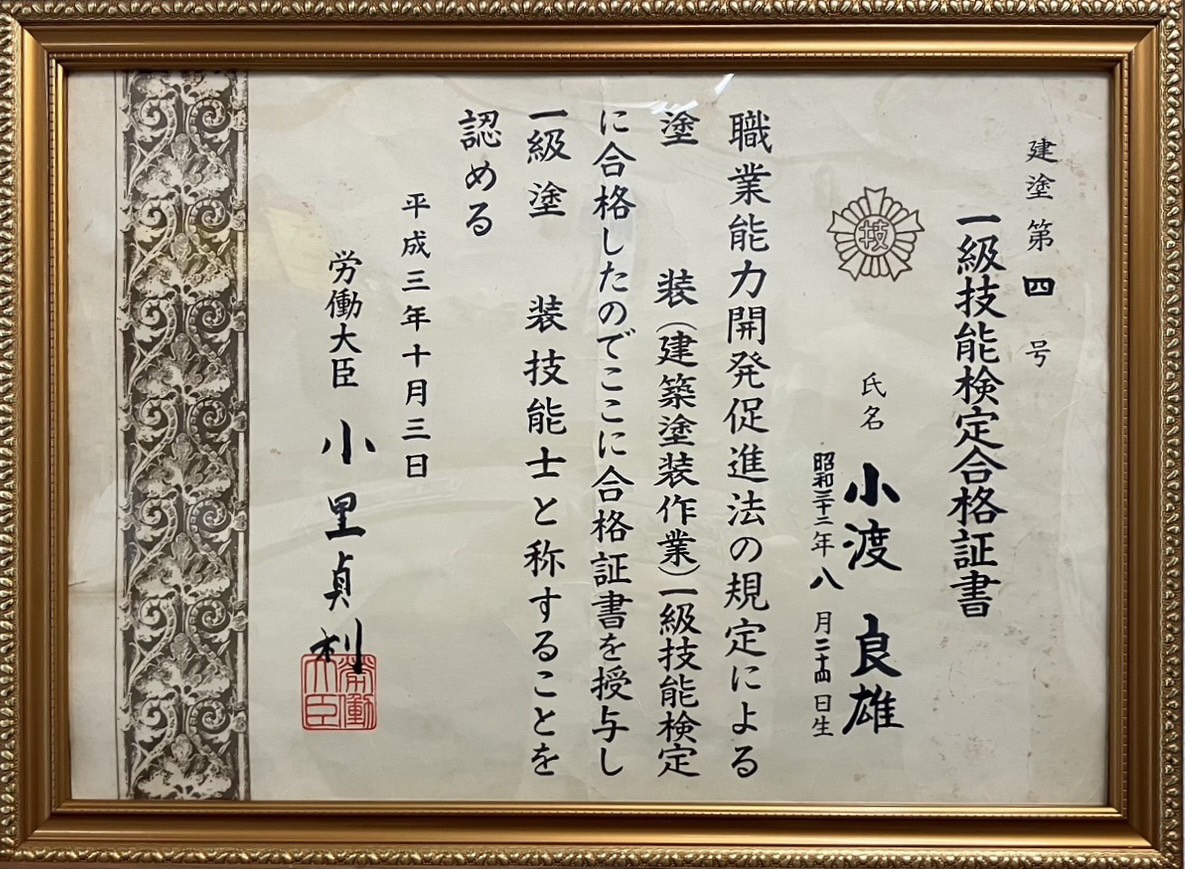 建塗第四号
一級技能検定合格証書
技
氏名 小渡 良雄
昭和三十二年八月二十四日生
職業能力開発促進法の規定による
塗 装(建築塗装作業)一級技能検定
に合格したのでここに合格証書を授与し
一級塗 装技能士と称することを
認める
平成三年十月三日
労働大臣 小里貞利
労働大臣